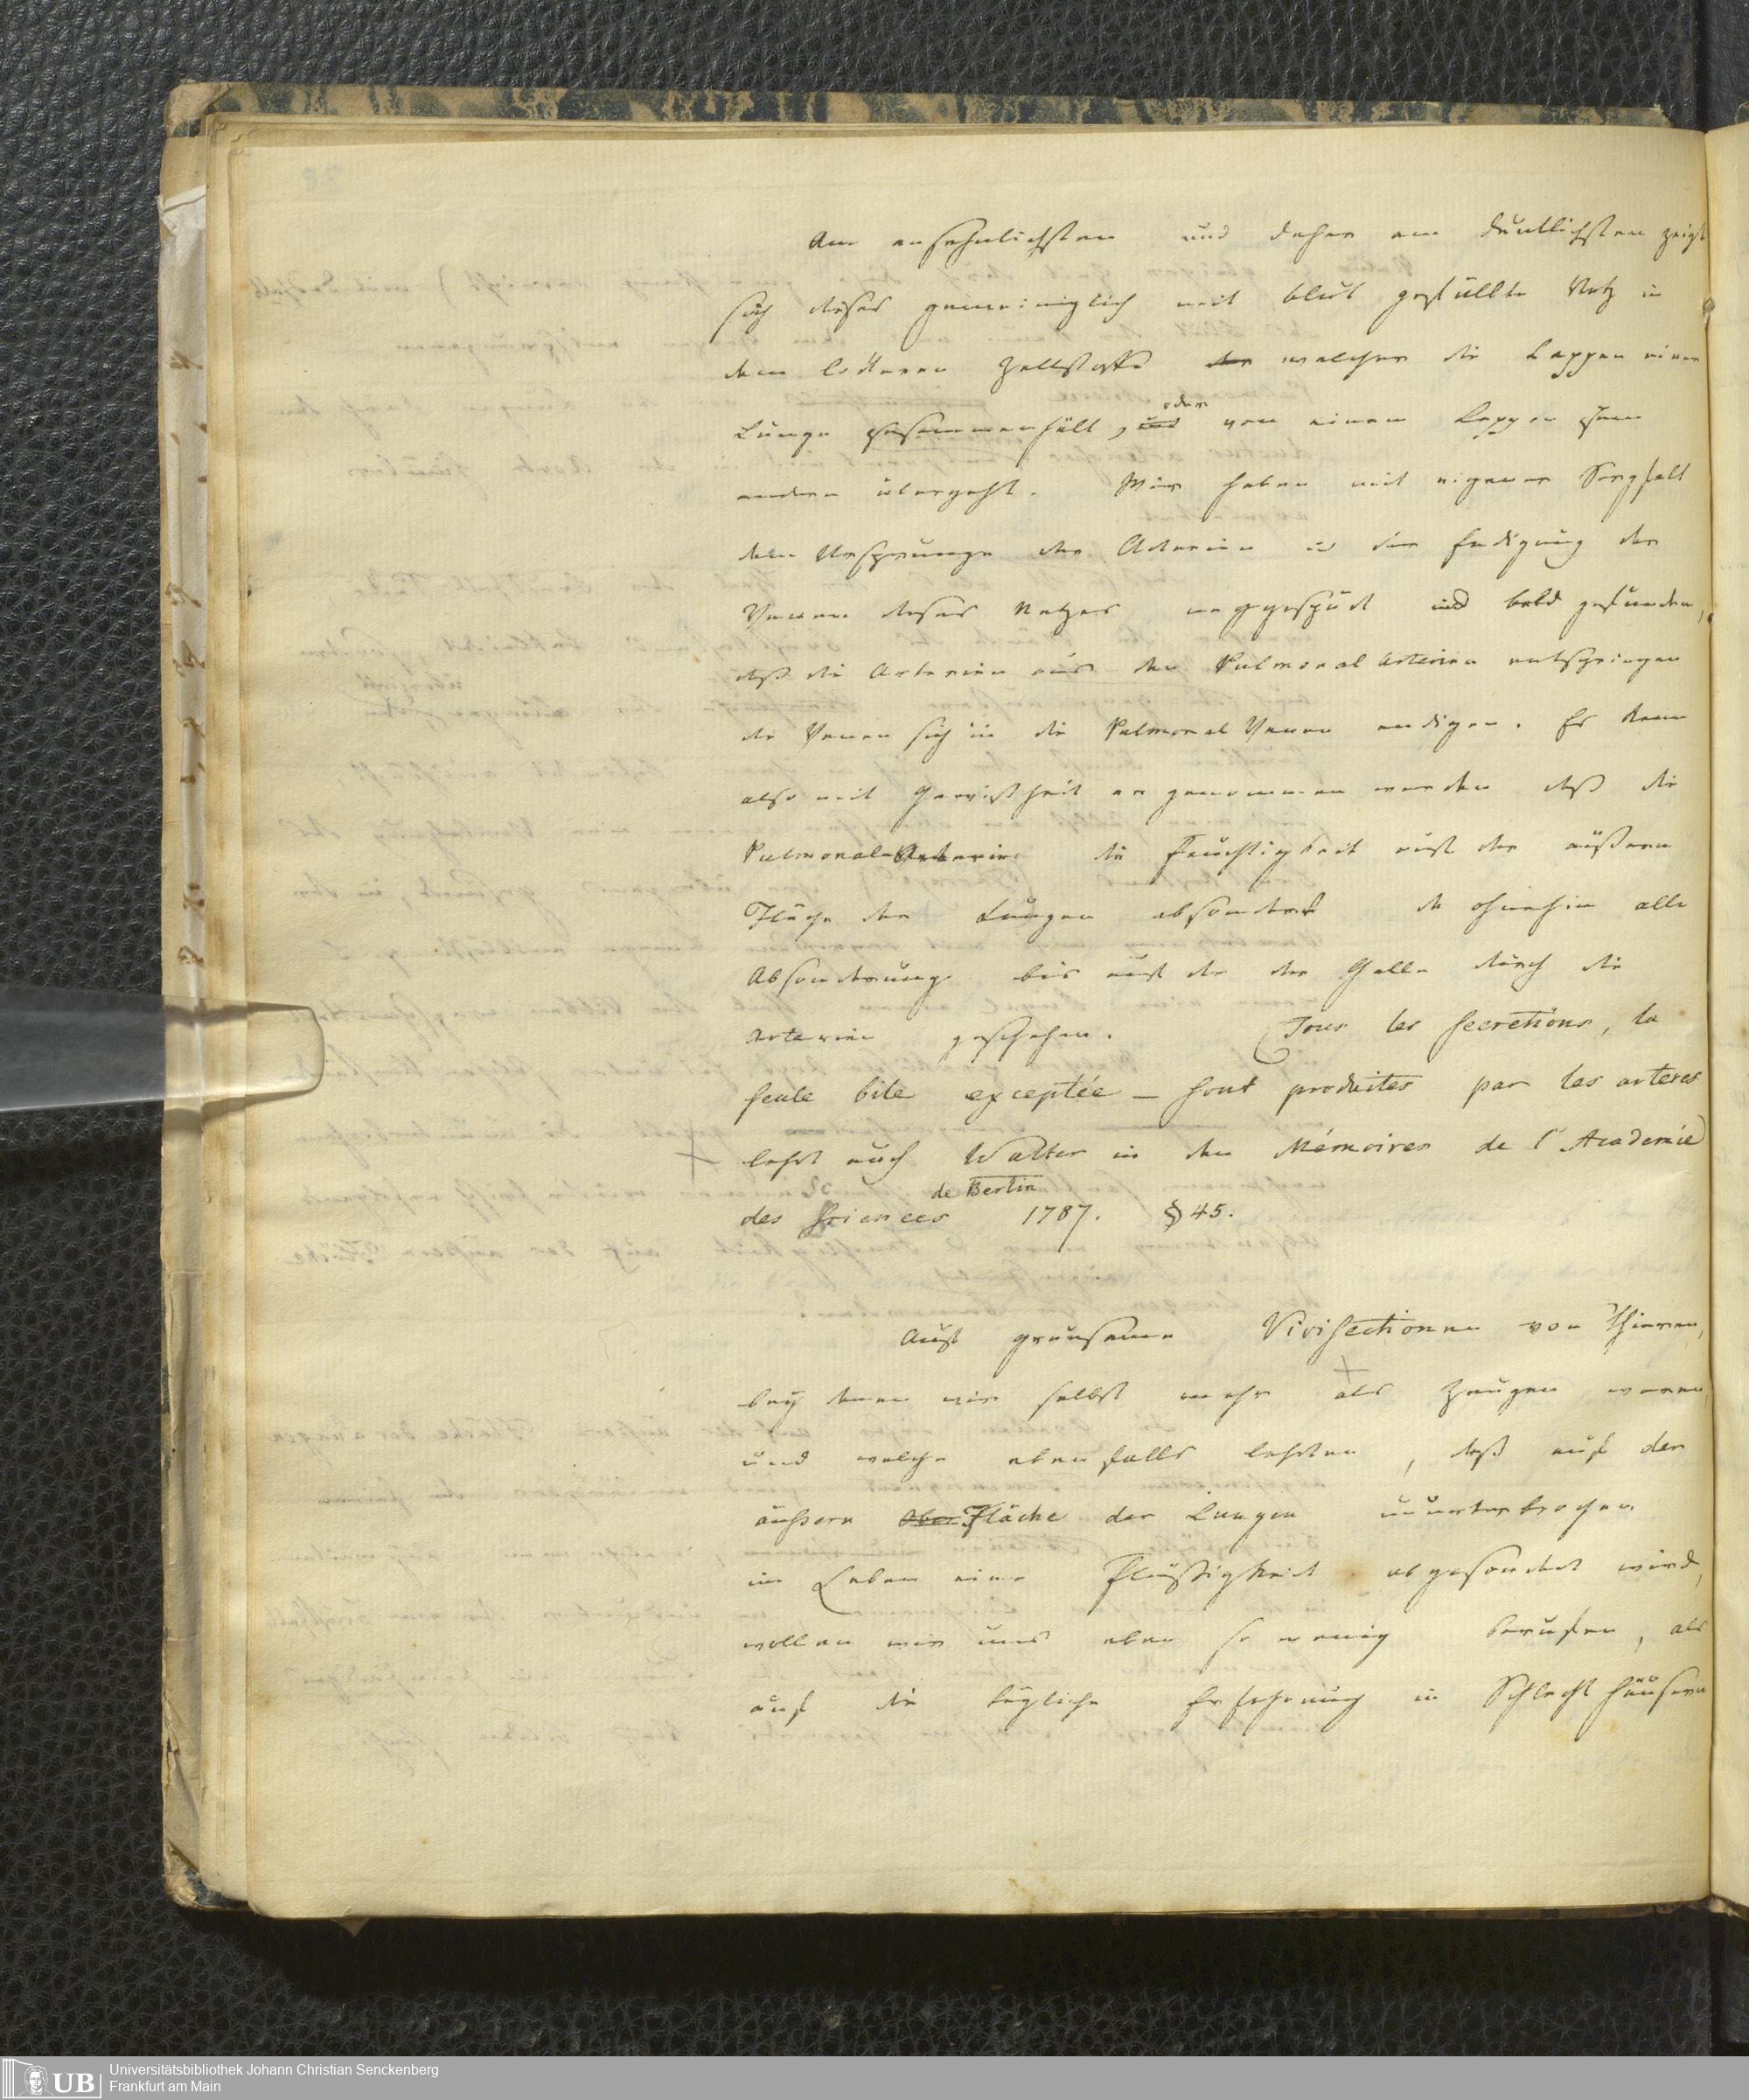 Am ansehnlichsten und daher am deutlichsten zeigt
sich dieses gemeiniglich mit blut gefüllte Netz in
dem lockeren Zellstoffe der welcher die Lappen einer
Lunge zusammenhält, und oder von einem Lappen zum
andern übergeht. Wir haben mit eigener Sorgfalt
dem Ursprunge der Arterien u der Endigung der
Venen dieses Netzes nachgespürt und bald gefunden,
daß die Arterien aus den Pulmonal Arterien entspringen
die Venen sich in die Pulmonal Venen endigen. Es kann
also mit Gewißheit angenommen werden daß die
Pulmonal-Arterie die Feuchtigkeit auf der äußeren
Fläche der Lungen absondert da ohnehin alle
Absonderung bis auf die der Galle durch die
Arterien geschehen. (Tous les secretions, la
seule bile exceptée – sont produites par les arteres
lehrt auch Walter in den Mémoires de l'Academie)
des Sciences de Berlin 1787. § 45.
Auf grausame Vivisectionen von Thieren,
bey denen wir selbst mehr als Zeugen waren
und welche ebenfalls lehrten, daß auf der
äußern Ober Fläche der Lungen ununterbrochen
im Leben eine Flüßigkeit abgesondert wird,
wollen wir uns eben so wenig berufen, als
auf die tägliche Erfahrung in Schlachthäusern
UB Universitätsbibliothek Johann Christian Senckenberg
Frankfurt am Main